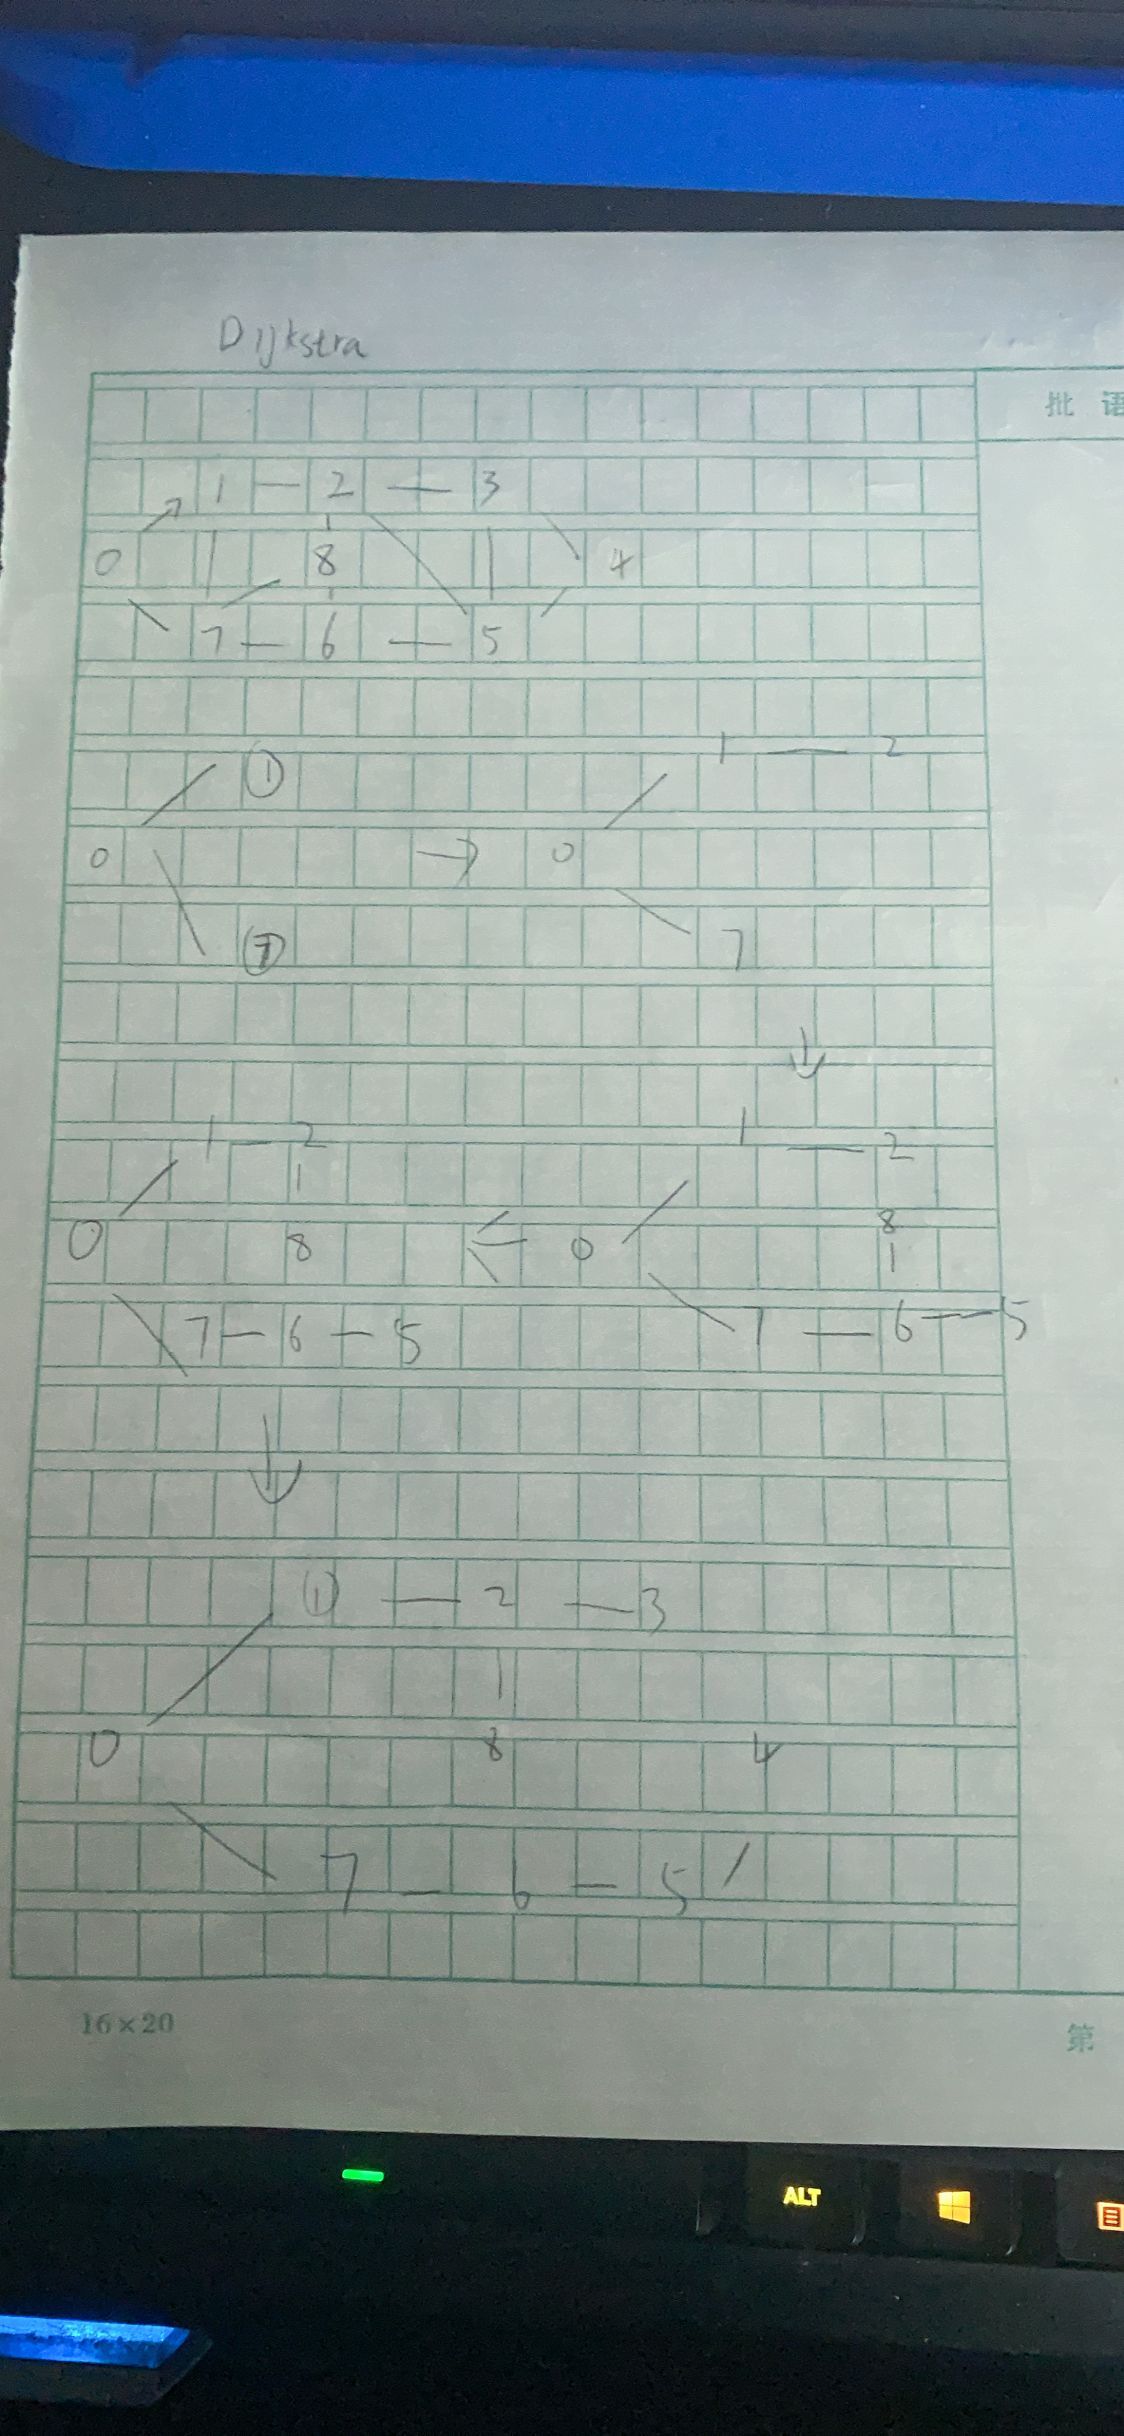 Dijkstra
批 语
1 — 2 — 3
0 8 4
7 — 6 — 5
1 — 2
①
0 → 0
⑦ 7
↓
1 — 2 1 — 2
8
0 8 ← 0
7 — 6 — 5 7 — 6 — 5
↓
① — 2 — 3
0 8 4
7 — 6 — 5
16×20
第
ALT